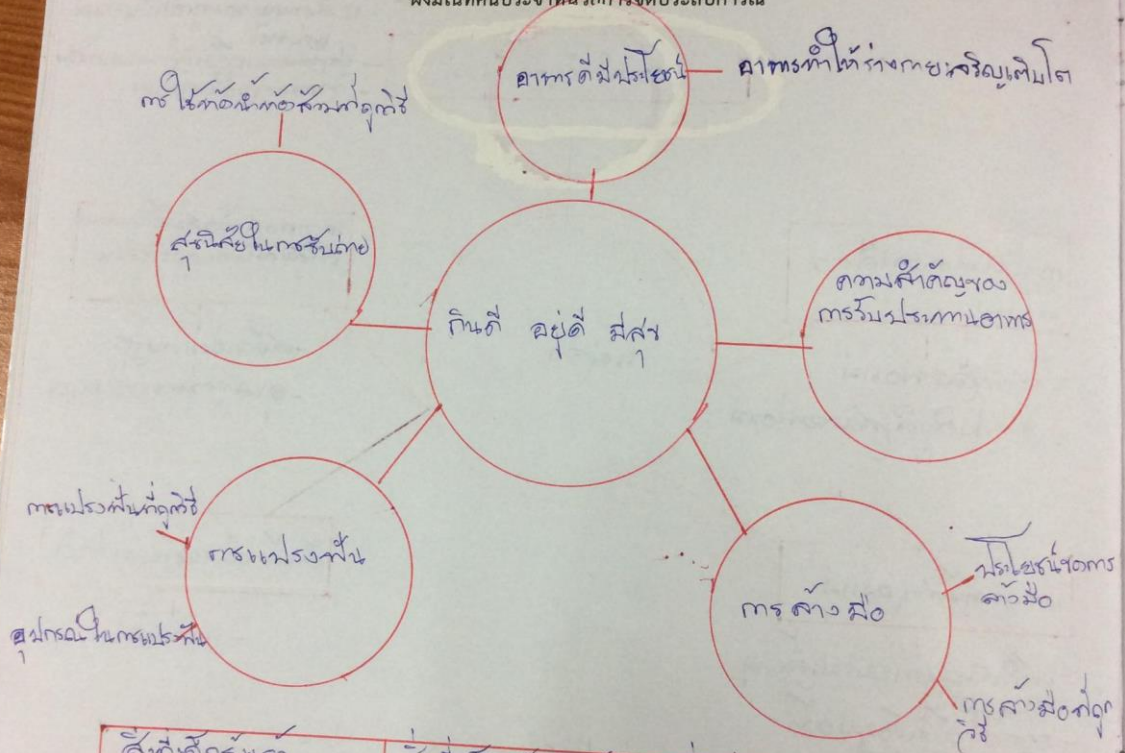 ผังมโนทัศน์ประจำหน่วยการจัดประสบการณ์
อาหารดีมีประโยชน์
อาหารทำให้ร่างกายเจริญเติบโต
การใช้ห้องน้ำห้องส้วมที่ถูกวิธี
สุขนิสัยในการขับถ่าย
กินดี อยู่ดี มีสุข
ความสำคัญของ
การรับประทานอาหาร
การแปรงฟันที่ถูกวิธี
การแปรงฟัน
อุปกรณ์ในการแปรงฟัน
การล้างมือ
ประโยชน์ของการ
ล้างมือ
การล้างมือที่ถูก
วิธี
สิ่งที่เด็กรู้แล้ว